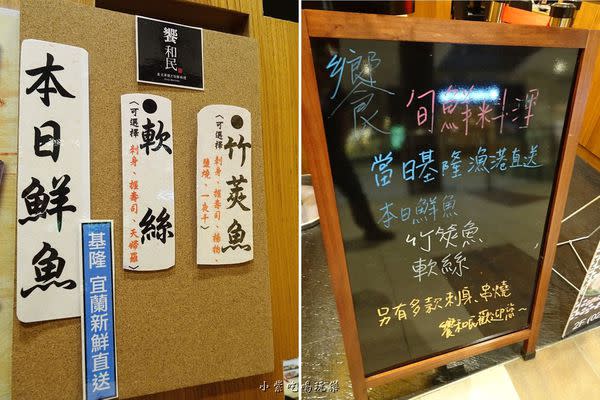 饗
和
民
本日鮮魚
軟絲
〈可選擇 刺身、握壽司、天婦羅〉
竹莢魚
〈可選擇 刺身、握壽司、揚物、
鹽燒、一夜干〉
基隆 宜蘭新鮮直送
饗
旬鮮料理
當日基隆漁港直送
本日鮮魚
竹筴魚
軟絲
另有多款刺身、串燒
饗和民歡迎您~